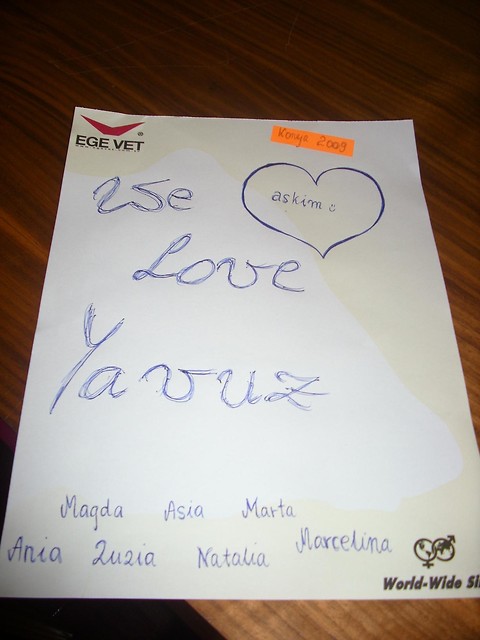 EGE VET
Konya 2009
We
askim
Love
Yavuz
Magda Asia Marta
Ania Zuzia Natalia Marcelina
World-Wide